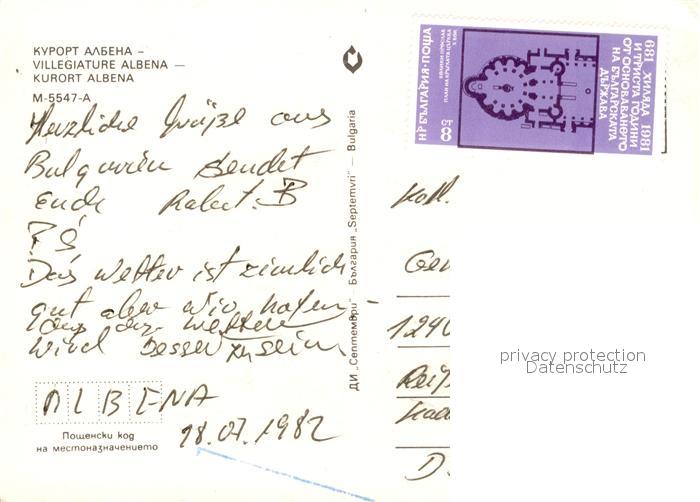 КУРОРТ АЛБЕНА –
VILLEGIATURE ALBENA —
KURORT ALBENA
М-5547-А
Herzliche Grüße aus
Bulgarien sendet
Euch Robert. B
PS
Das Wetter ist ziemlich
gut aber wir hoffen
das das Wetter
wird besser sein
ALBENA
Пощенски код
на местоназначението
18.07.1982
ДИ „Септември" България „Septemvri" — Bulgaria
НР БЪЛГАРИЯ·ПОЩА
8 ст
681 ХИЛЯДА 1981
И ТРИСТА ГОДИНИ
ОТ ОСНОВАВАНЕТО
НА БЪЛГАРСКАТА
ДЪРЖАВА
Koll.
124
D.
privacy protection
Datenschutz